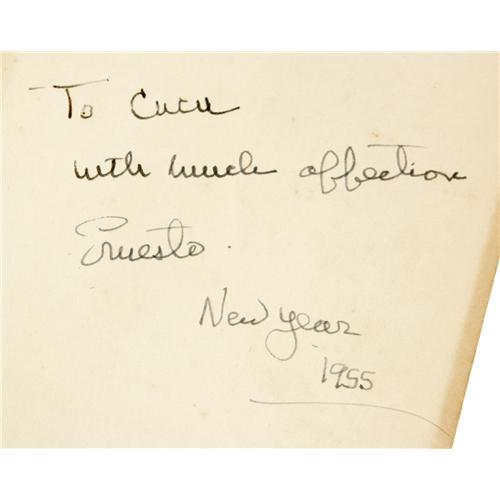 To Cucu
with much affection
Ernesto.
New Year
1955